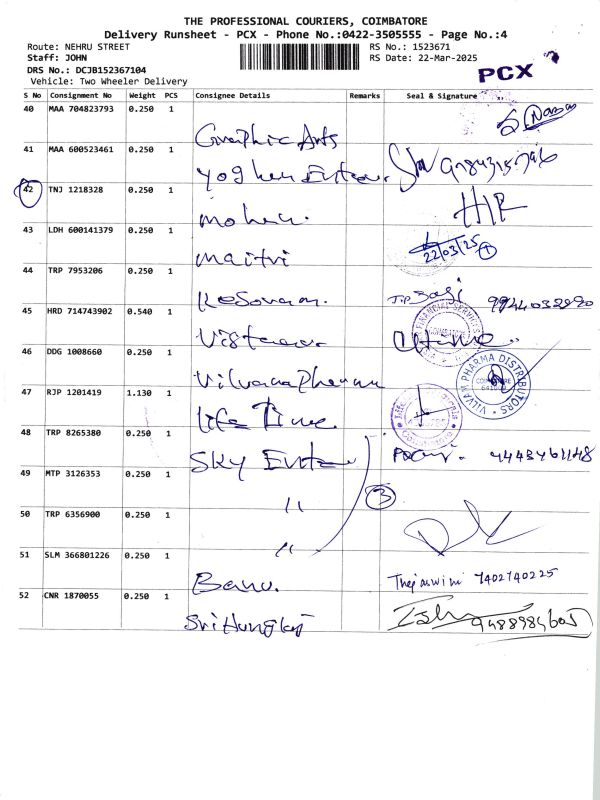 THE PROFESSIONAL COURIERS, COIMBATORE
Delivery Runsheet - PCX - Phone No.:0422-3505555 - Page No.:4
Route: NEHRU STREET
RS No.: 1523671
Staff: JOHN
RS Date: 22-Mar-2025
DRS No.: DCJB152367104
Vehicle: Two Wheeler Delivery
PCX
S No Consignment No Weight PCS Consignee Details Remarks Seal & Signature
40 MAA 704823793 0.250 1
Graphic Arts
41 MAA 600523461 0.250 1
42 TNJ 1218328 0.250 1
43 LDH 600141379 0.250 1
22/03/25
Maitri
44 TRP 7953206 0.250 1
45 HRD 714743902 0.540 1
FINANCIAL SERVICES
46 DDG 1008660 0.250 1
VILVAM PHARMA DISTRIBUTORS
47 RJP 1201419 1.130 1
Life Time
48 TRP 8265380 0.250 1
Sky
49 MTP 3126353 0.250 1
"
3
50 TRP 6356900 0.250 1
"
51 SLM 366801226 0.250 1
Banu. 7402740225
52 CNR 1870055 0.250 1